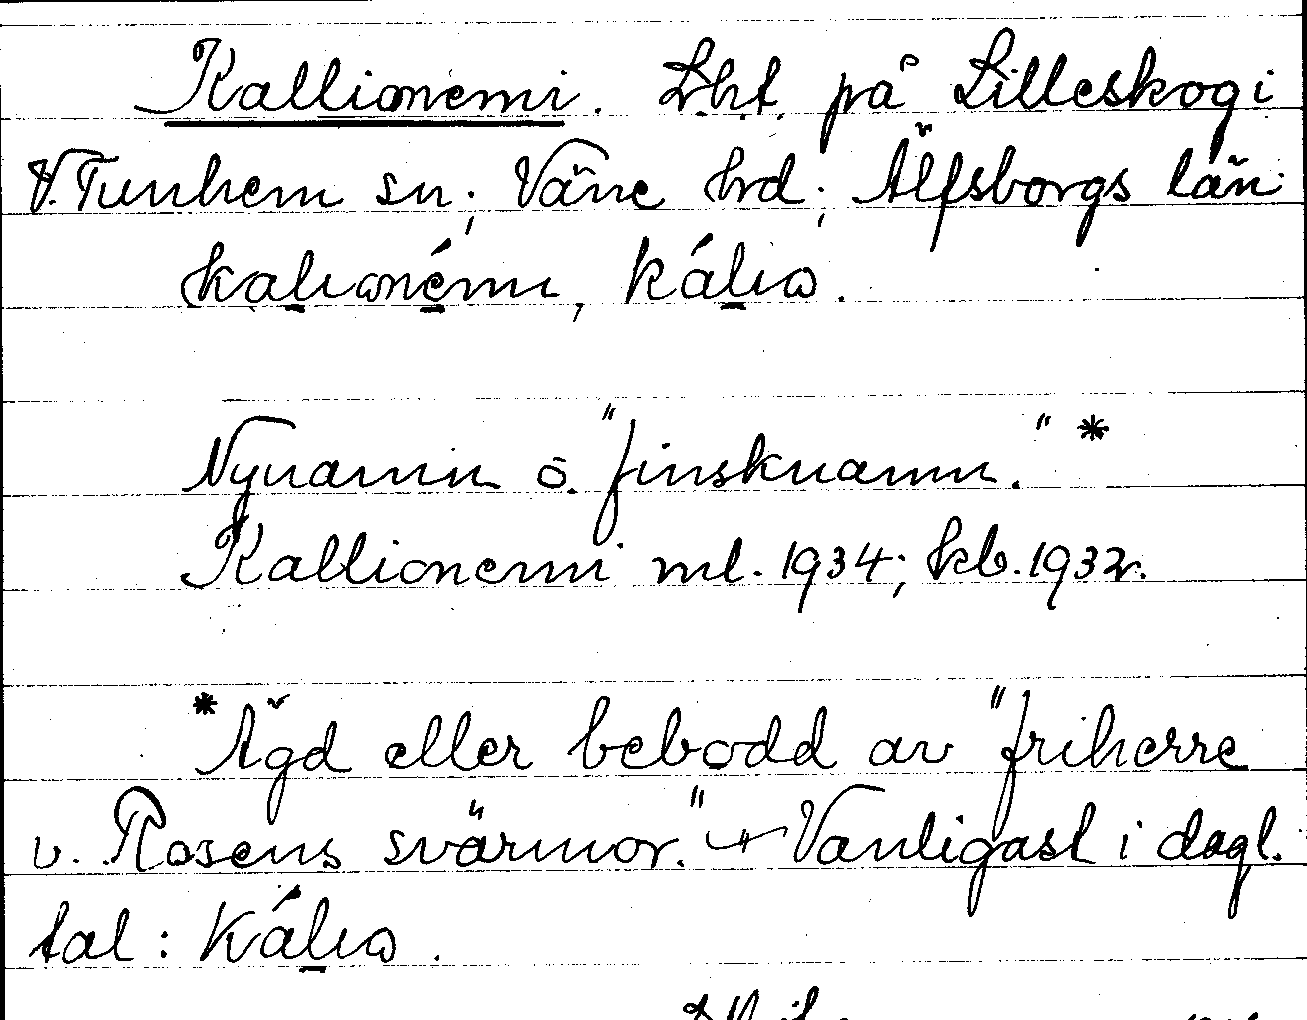 Kallionemi. Lht. på Lilleskog i
V. Tunhem sn; Väne hrd; Älfsborgs län
kalionémi, kálio.
Nynamn o. "finsknamn." *
Kallionemi ml. 1934; kb. 1932.
* Ägd eller bebodd av "friherre
v. Rosens svärmor." Vanligast i dagl.
tal: kálio.